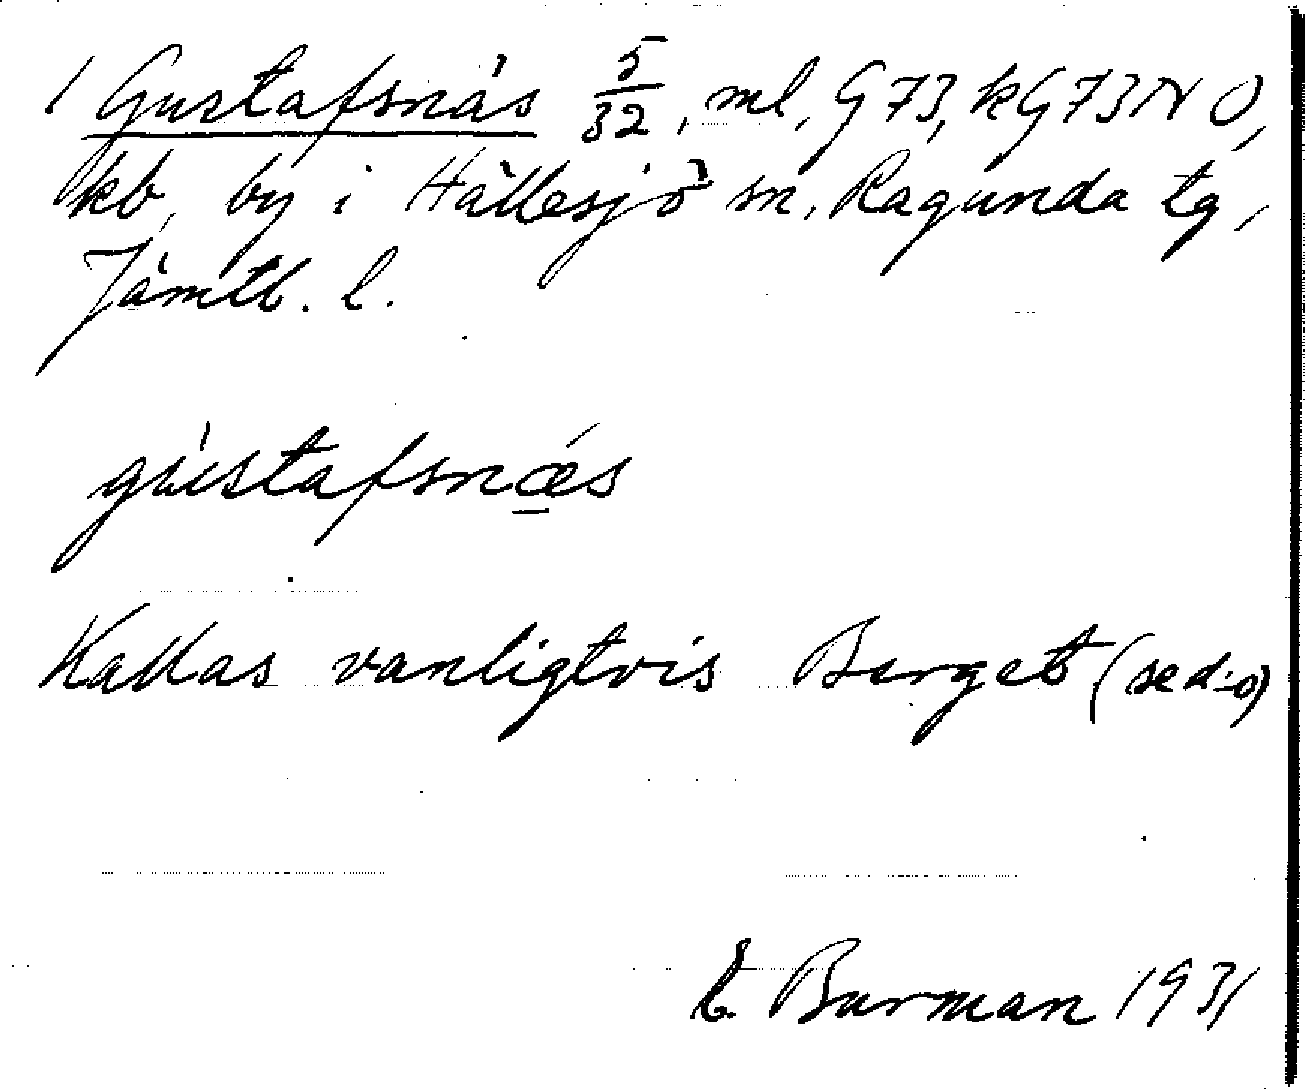 1 Gustafsnäs 5/32, ml, G73, kG73NO,
kb, by i Hällesjö sn, Ragunda tg,
Jämtl. l.
gùstafsnǽs
Kallas vanligtvis Berget (se d:o)
E Burman 1931